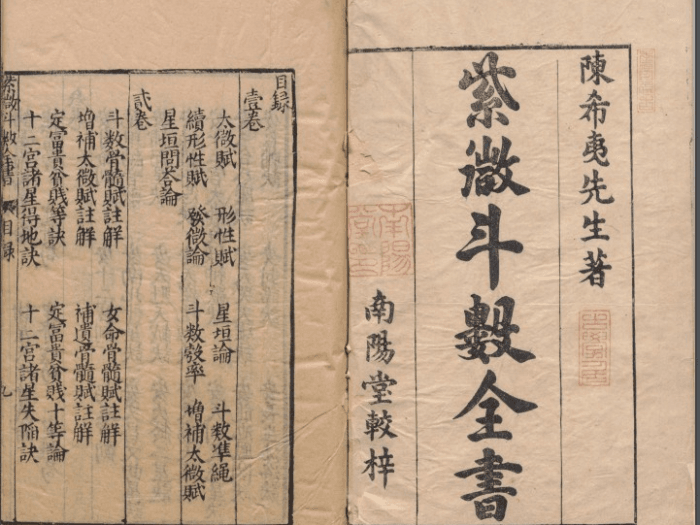 陳希夷先生著
紫微斗數全書
南陽堂較梓
目録
壹卷
太微賦 形性賦 星垣論 斗数準繩
續形性賦 發微論 斗数彀率 増補太微賦
星垣問荅論
貳卷
斗数骨髓賦註解 女命骨髓賦註解
増補太微賦註解 補遺骨髓賦註解
定富貴貧賤等訣 定富貴貧賤十等論
十二宫諸星得地訣 十二宫諸星失陷訣
紫微斗数全書 目録 九